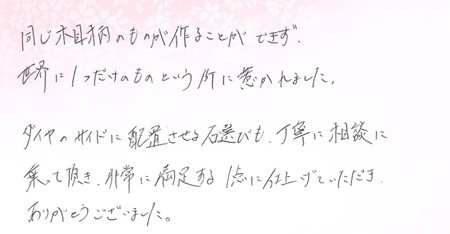 同じ木目柄のものが作ることができず、
世界に1つだけのものという所に惹かれました。
ダイヤのサイドに配置させる石選びも、丁寧に相談に
乗って頂き、非常に満足する1点に仕上げていただき
ありがとうございました。